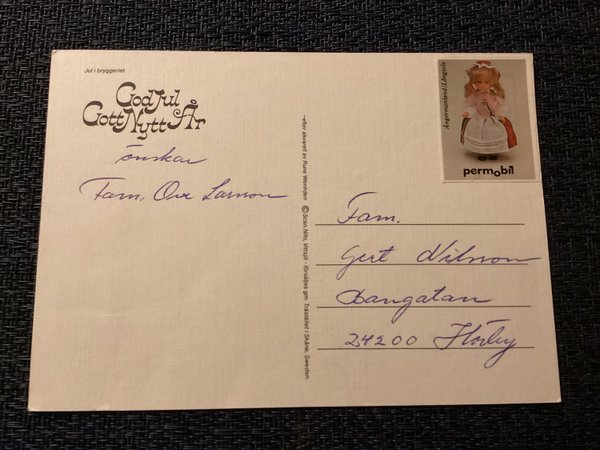 Jul i bryggeriet
God Jul
Gott Nytt År
önskar
Fam. Ove Larsson
–efter akvarell av Rune Wenliden © Scan.Nillo, Vittsjö - försäljes gm. Traställer i Skåne, Sweden
Ångermanland/Långsele
permobil
Fam.
Gert Nilsson
Bangatan
24200 Hörby